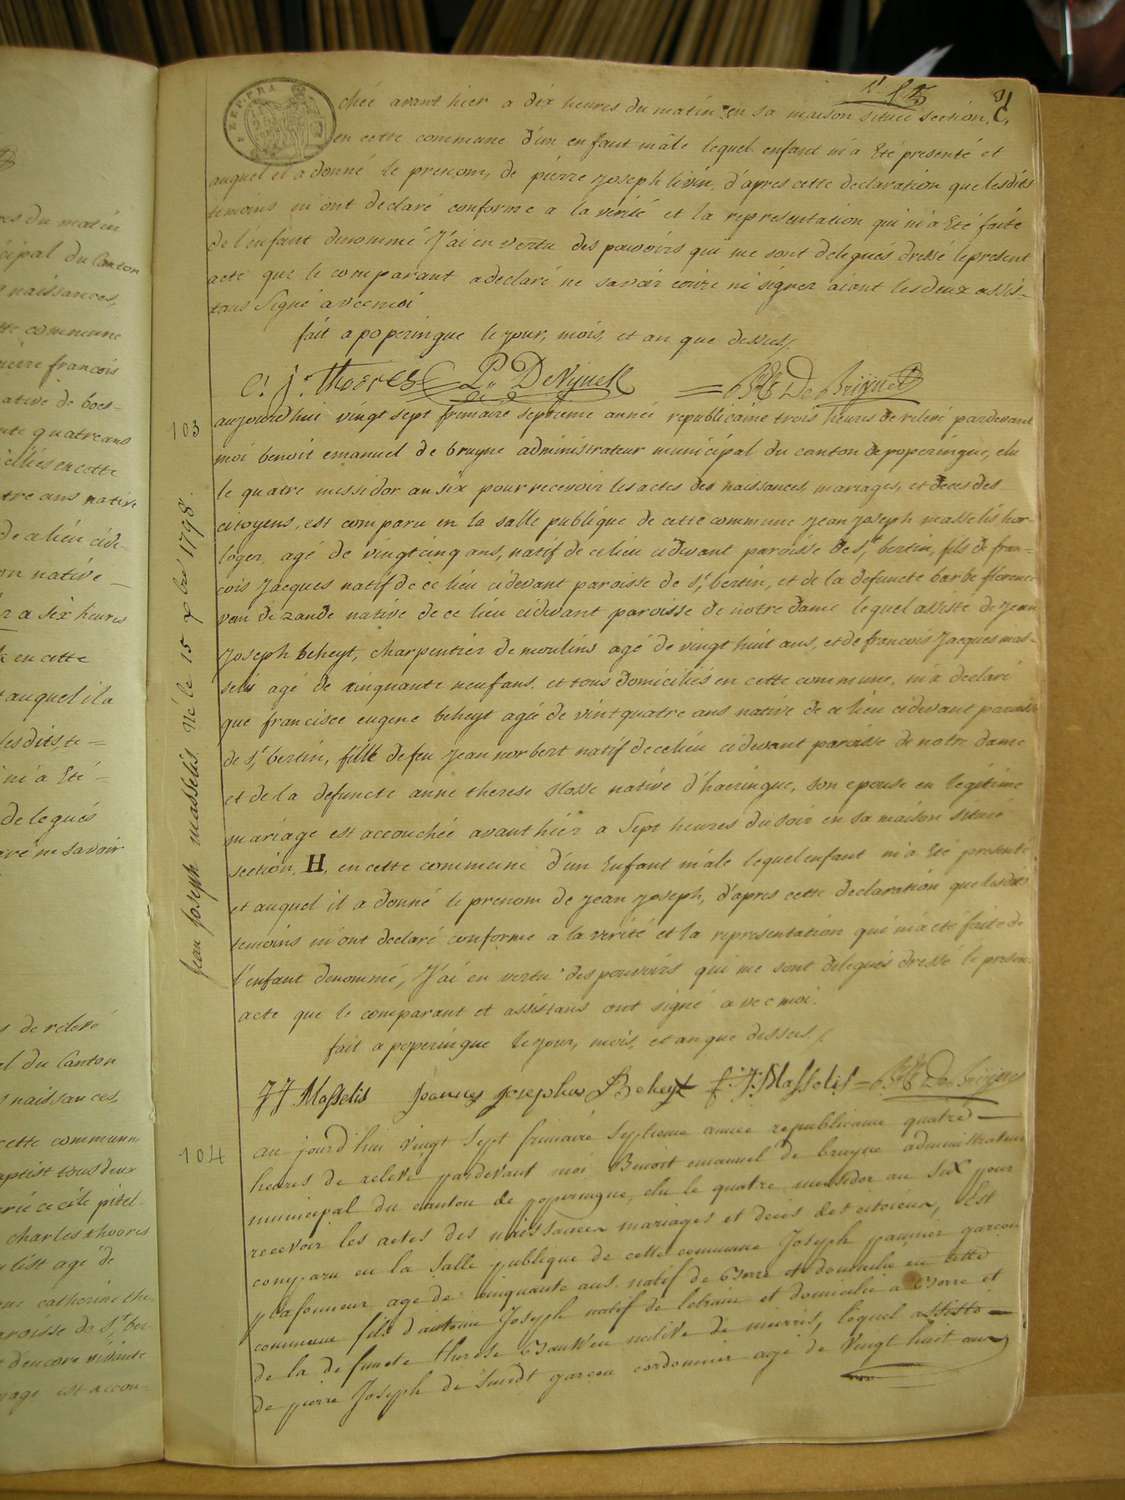 res du matin
cipal du Canton
naissances,
tte commune
francois
native de boes-
nte quatre ans
ciliés en cette
tre ans native
de ce lieu cide-
on native
a six heures
en cette
auquel il a
lesdits te=
m'a Eté=
delegués
ne savoir
de relevé
el du Canton
naissances,
cette commune
aptist tous deux
charles thoores
agé de
catherine the
paroisse de St ber
d'encore vivante
riage est accou-
REP. FRA
chée avant hier a dix heures du matin en sa maison située section C,
en cette commune d'un enfant mâle lequel enfant m'a Eté presenté et
auquel il a donné le prenom, de pierre joseph livin, d'apres cette declaration que lesdits
temoins m'ont declaré conforme a la verité et la representation qui m'a Eté faite
de l'enfant denommé J'ai en vertu des pouvoirs qui me sont delegués dressé le present
acte que le comparant a declaré ne savoir ecrire ni signer aiant les deux assis-
tans signé avec moi
fait a poperingue le jour, mois, et an que dessus/
C. J. Thoores P. DeNynck BE De Bruyne
103
aujourd'hui vingt sept frimaire septieme année republicaine trois heures de relevé pardevant
moi benoit emanuel de bruyne administrateur municipal du canton de poperingue, elu
le quatre messidor an six pour recevoir les actes des naissances, mariages, et deces des
citoyens, est comparu en la salle publique de cette commune jean joseph masselis hor
loger, agé de vingt cinq ans, natif de ce lieu cidevant paroisse de St bertin, fils de fran=
cois Jacques natif de ce lieu cidevant paroisse de St bertin, et de la defuncte barbe florence
van de zande native de ce lieu cidevant paroisse de notre dame lequel assisté de jean
joseph beheyt, charpentier de moulins agé de vingt huit ans, et de francois Jacques mas-
selis agé de cinquante neuf ans, et tous domiciliés en cette commune, m'a declaré
que francisce eugene beheyt agée de vint quatre ans native de ce lieu cidevant paroisse
de St bertin, fille de feu jean norbert natif de ce lieu cidevant paroisse de notre dame
et de la defuncte anne therese slosse native d'haeringue, son epouse en legitime
mariage est accouchée avant hier a sept heures du soir en sa maison située
section, H, en cette commune d'un Enfant mâle lequel enfant m'a Eté presenté
et auquel il a donné le prenom de jean joseph, d'apres cette declaration que lesdits
temoins m'ont declaré conforme a la verité et la representation qui m'a eté faite de
l'enfant denommé, J'ai en vertu des pouvoirs qui me sont delegués dressé le present
acte que le comparant et assistans ont signé avec moi.
fait a poperingue le jour, mois, et an que dessus/
Jean Joseph masselis Né le 15 xbre 1798.
JJ Masselis Joannes josephus Beheyt f: J: Masselis= BE De bruyne
104
au jourd'hui vingt sept frimaire septieme année republicaine quatre
heures de relevé pardevant moi Benoit emanuel de bruyne administrateur
municipal du canton de poperingue, elu le quatre messidor an six pour
recevoir les actes des naissances mariages et deces des citoiens, Est
comparu en la salle publique de cette commune Joseph paunier garçon
plafonneur agé de cinquante ans natif de et domicilié en cette
commune fils d'antoine Joseph natif de et domicilié a et
de la defuncte therese native de merris, lequel assisté
de pierre Joseph de smedt garçon cordonnier agé de Vingt huit ans